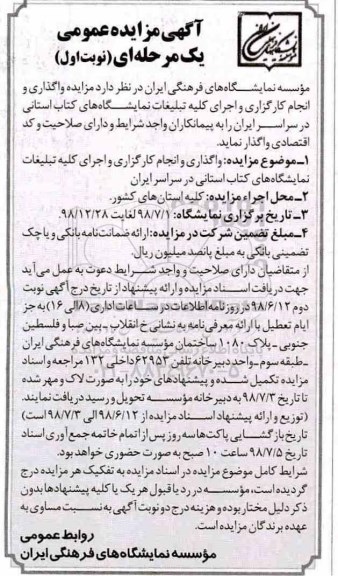 آگهی مزایده عمومی
یک مرحله‌ای (نوبت اول)
مؤسسه نمایشگاه‌های فرهنگی ایران در نظر دارد مزایده واگذاری و
انجام کارگزاری و اجرای کلیه تبلیغات نمایشگاه‌های کتاب استانی
در سراسر ایران را به پیمانکاران واجد شرایط و دارای صلاحیت و کد
اقتصادی واگذار نماید.
۱ـ موضوع مزایده: واگذاری و انجام کارگزاری و اجرای کلیه تبلیغات
نمایشگاه‌های کتاب استانی در سراسر ایران
۲ـ محل اجراء مزایده: کلیه استان‌های کشور.
۳ـ تاریخ برگزاری نمایشگاه: ۹۸/۷/۱ لغایت ۹۸/۱۲/۲۸
۴ـ مبلغ تضمین شرکت در مزایده: ارائه ضمانت‌نامه بانکی و یا چک
تضمینی بانکی به مبلغ پانصد میلیون ریال.
از متقاضیان دارای صلاحیت و واجد شرایط دعوت به عمل می‌آید
جهت دریافت اسناد مزایده و ارائه پیشنهاد از تاریخ درج آگهی نوبت
دوم ۹۸/۶/۱۲ در روزنامه اطلاعات در ساعات اداری (۸ الی ۱۶) به جز
ایام تعطیل با ارائه معرفی‌نامه به نشانی خ انقلاب ـ بین صبا و فلسطین
جنوبی ـ پلاک ۱۰۸۰ ساختمان مؤسسه نمایشگاه‌های فرهنگی ایران
ـ طبقه سوم ـ واحد دبیرخانه تلفن ۶۲۹۵۳ داخلی ۱۳۲ مراجعه و اسناد
مزایده تکمیل شده و پیشنهادهای خود را به صورت لاک و مهر شده
تا تاریخ ۹۸/۷/۳ به دبیرخانه مؤسسه تحویل و رسید دریافت نمایند.
(توزیع و ارائه پیشنهاد اسناد مزایده از ۹۸/۶/۱۲ الی ۹۸/۷/۳ است)
تاریخ بازگشایی پاکت‌ها سه روز پس از اتمام خاتمه جمع‌آوری اسناد
تاریخ ۹۸/۷/۵ ساعت ۱۰ صبح به صورت حضوری خواهد بود.
شرایط کامل موضوع مزایده در اسناد مزایده به تفکیک هر مزایده درج
گردیده است، مؤسسه در رد یا قبول هر یک یا کلیه پیشنهادها بدون
ذکر دلیل مختار بوده و هزینه درج دو نوبت آگهی به نسبت مساوی به
عهده برندگان مزایده است.
روابط عمومی
مؤسسه نمایشگاه‌های فرهنگی ایران